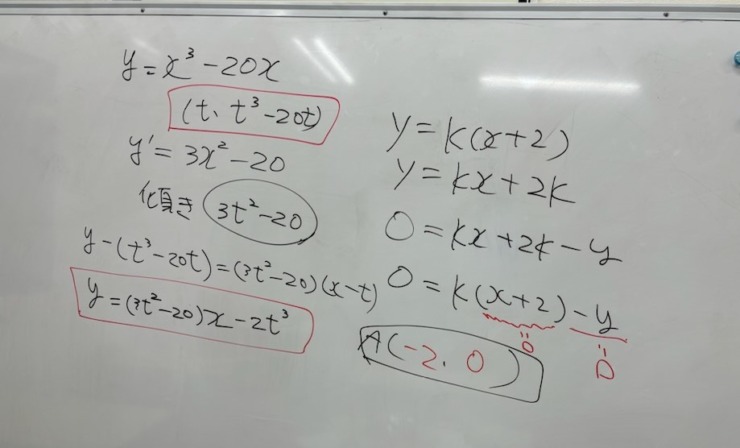 y=x³-20x
(t、t³-20t)
y'=3x²-20
傾き 3t²-20
y-(t³-20t)=(3t²-20)(x-t)
y=(3t²-20)x-2t³
y=k(x+2)
y=kx+2k
0=kx+2k-y
0=k(x+2)-y
0 0
A(-2、0)